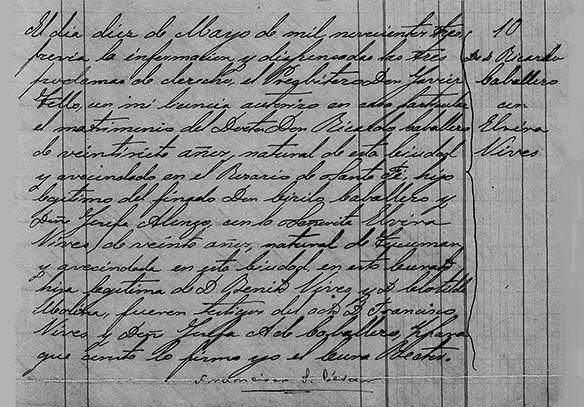 El dia diez de Mayo de mil novecientos tres,
previa la informacion y dispensadas las tres
proclamas de derecho, el Presbitero Don Javier
Tello, con mi licencia autorizo en casa particular
el matrimonio del Doctor Don Ricardo Caballero
de veintisiete años, natural de esta ciudad
y avecindado en el Rosario de Santa Fé, hijo
legitimo del finado Don Cirilo Caballero y
Doña Josefa Alonzo, con la Señorita Elvina
Vives, de veinte años, natural de Tucuman
y avecindada en esta ciudad, en este Curato
hija legitima de D Benito Vives y D Clotilde
Molina, fueron testigos del acto D Francisco
Vives y Doña Josefa A de Caballero, y para
que conste lo firmo yo el Cura Rector.
Francisco S.
10
Dr. D Ricardo
Caballero
con
Elvina
Vives